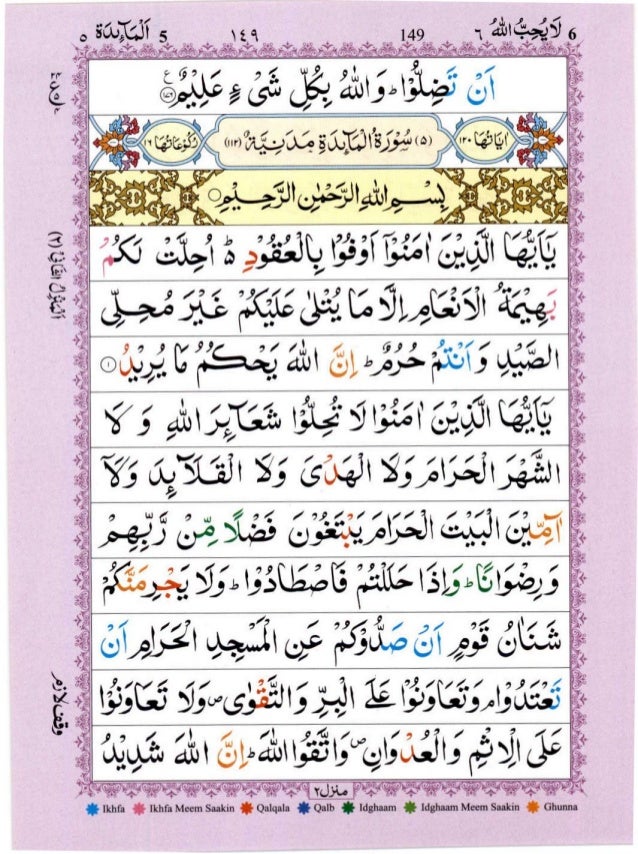 ٥ اَلْمَآئِدَة 5 ١٤٩ 149 لَا يُحِبُّ اللّٰهُ ٦ 6
اَنْ تَضِلُّوْا ؕ وَاللّٰهُ بِكُلِّ شَیْ ءٍ عَلِیْمٌ ﴿١٧٦﴾
اٰيَاتُهَا ١٢٠ (٥) سُوْرَةُ الْمَآئِدَةِ مَدَنِيَّةٌ (١١٢) رُكُوْعَاتُهَا ١٦
بِسْمِ اللّٰهِ الرَّحْمٰنِ الرَّحِيْمِ
يٰۤاَيُّهَا الَّذِيْنَ اٰمَنُوْۤا اَوْفُوْا بِالْعُقُوْدِ ؕ اُحِلَّتْ لَكُمْ
بَهِيْمَةُ الْاَنْعَامِ اِلَّا مَا يُتْلٰى عَلَيْكُمْ غَيْرَ مُحِلِّی
الصَّيْدِ وَ اَنْتُمْ حُرُمٌ ؕ اِنَّ اللّٰهَ يَحْكُمُ مَا يُرِيْدُ ﴿١﴾
يٰۤاَيُّهَا الَّذِيْنَ اٰمَنُوْا لَا تُحِلُّوْا شَعَآئِرَ اللّٰهِ وَ لَا
الشَّهْرَ الْحَرَامَ وَلَا الْهَدْیَ وَلَا الْقَلَآئِدَ وَلَاۤ
آٰمِّيْنَ الْبَيْتَ الْحَرَامَ يَبْتَغُوْنَ فَضْلًا مِّنْ رَّبِّهِمْ
وَرِضْوَانًا ؕ وَاِذَا حَلَلْتُمْ فَاصْطَادُوْا ؕ وَلَا يَجْرِمَنَّكُمْ
شَنَاٰنُ قَوْمٍ اَنْ صَدُّوْكُمْ عَنِ الْمَسْجِدِ الْحَرَامِ اَنْ
تَعْتَدُوْا ۘ وَتَعَاوَنُوْا عَلَى الْبِرِّ وَالتَّقْوٰى ۪ وَلَا تَعَاوَنُوْا
عَلَى الْاِثْمِ وَالْعُدْوَانِ ۪ وَاتَّقُوا اللّٰهَ ؕ اِنَّ اللّٰهَ شَدِيْدُ
اَلْمَنْزِلُ الثَّانِیْ (٢)
وقف لازم
منزل ٢
Ikhfa Ikhfa Meem Saakin Qalqala Qalb Idghaam Idghaam Meem Saakin Ghunna